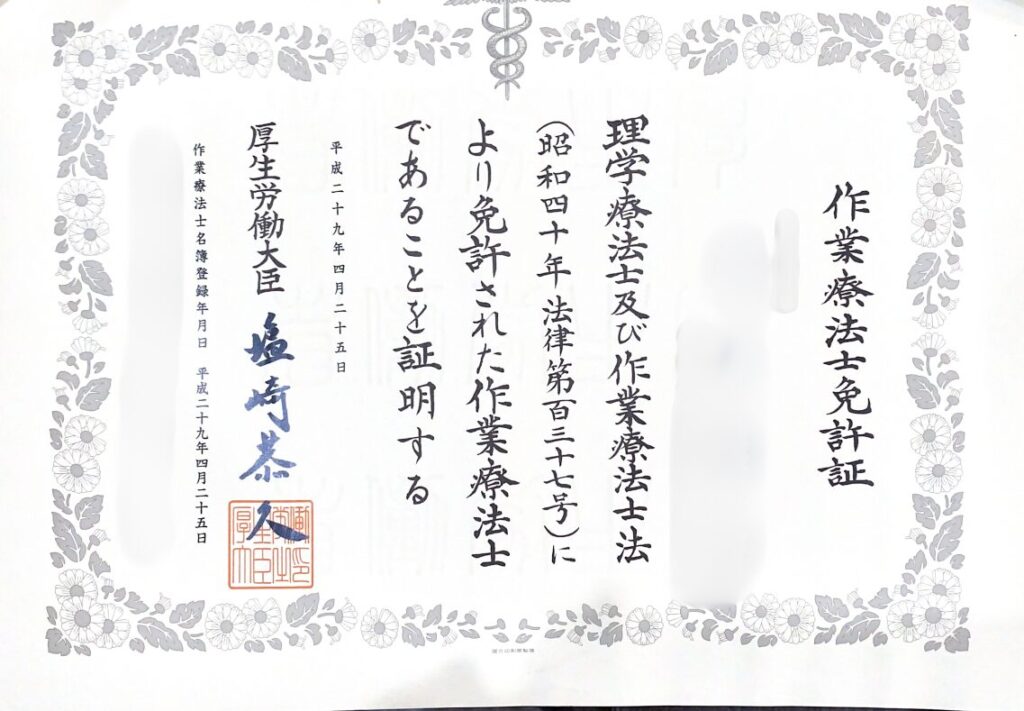 作業療法士免許証
理学療法士及び作業療法士法
(昭和四十年法律第百三十七号)に
より免許された作業療法士
であることを証明する
平成二十九年四月二十五日
厚生労働大臣 塩崎恭久
作業療法士名簿登録年月日 平成二十九年四月二十五日